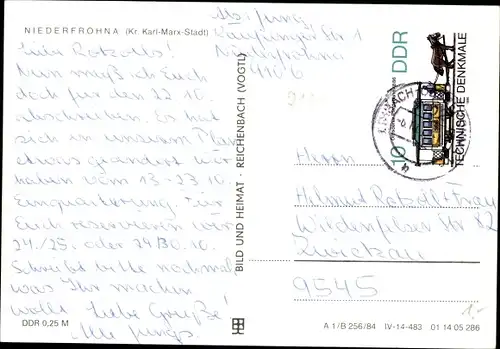 NIEDERFROHNA (Kr. Karl-Marx-Stadt)
Liebe
Nun muß ich Euch
doch für den 22.10.
abschreiben. Es hat
sich in unserem Plan
etwas geändert wir
haben vom 13.-23.10.
Einquartierung. Für
Euch reservieren wir
24./25. oder 29/30.10.
Schreibt bitte nochmal
was Ihr machen
wollt. Liebe Grüße!
Alle Jungs.
DDR 0,25 M
BILD UND HEIMAT · REICHENBACH (VOGTL)
Str 1
Niederfrohna
9106
10 DDR
TECHNISCHE DENKMALE
Herrn
Helmut
Str 82
Zwickau
9545
1,-
A 1/B 256/84 IV-14-483 01 14 05 286